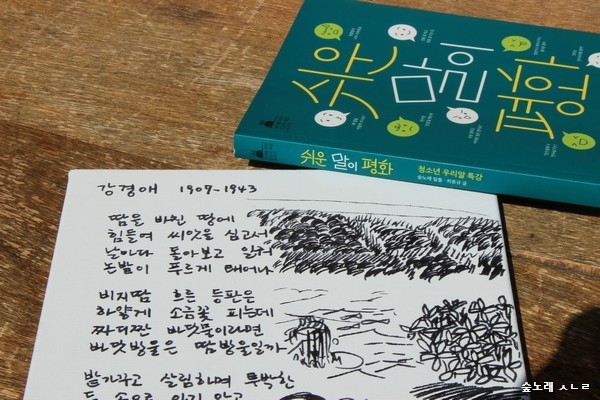 쉬운
말이
평화
쉬운 말이 평화
청소년 우리말 특강
숲노래 밑틀 · 최종규 글
강경애 1907-1943
땀을 바친 땅에
힘들여 씨앗을 심고서
날마다 돌아보고 일궈
논밭이 푸르게 태어나
비지땀 흐른 등판은
하얗게 소금꽃 피는데
짜디짠 바닷물이라면
바닷방울은 땀방울일까
밭 가꾸고 살림하며 투박한
숲노래 ㅅㄴㄹ